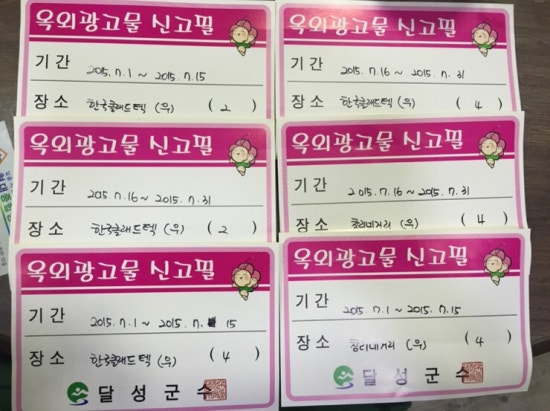 옥외광고물 신고필
기간 2015.7.1 ~ 2015.7.15
장소 한국클래드텍 (우) ( 2 )
옥외광고물 신고필
기간 2015.7.16 ~ 2015.7.31
장소 한국클래드텍 (우) ( 4 )
옥외광고물 신고필
기간 2015.7.16 ~ 2015.7.31
장소 한국클래드텍 (우) ( 2 )
옥외광고물 신고필
기간 2015.7.16 ~ 2015.7.31
장소 (우) ( 4 )
옥외광고물 신고필
기간 2015.7.1 ~ 2015.7. 15
장소 한국클래드텍 (우) ( 4 )
달성군수
옥외광고물 신고필
기간 2015.7.1 ~ 2015.7.15
장소 (우) ( 4 )
달성군수